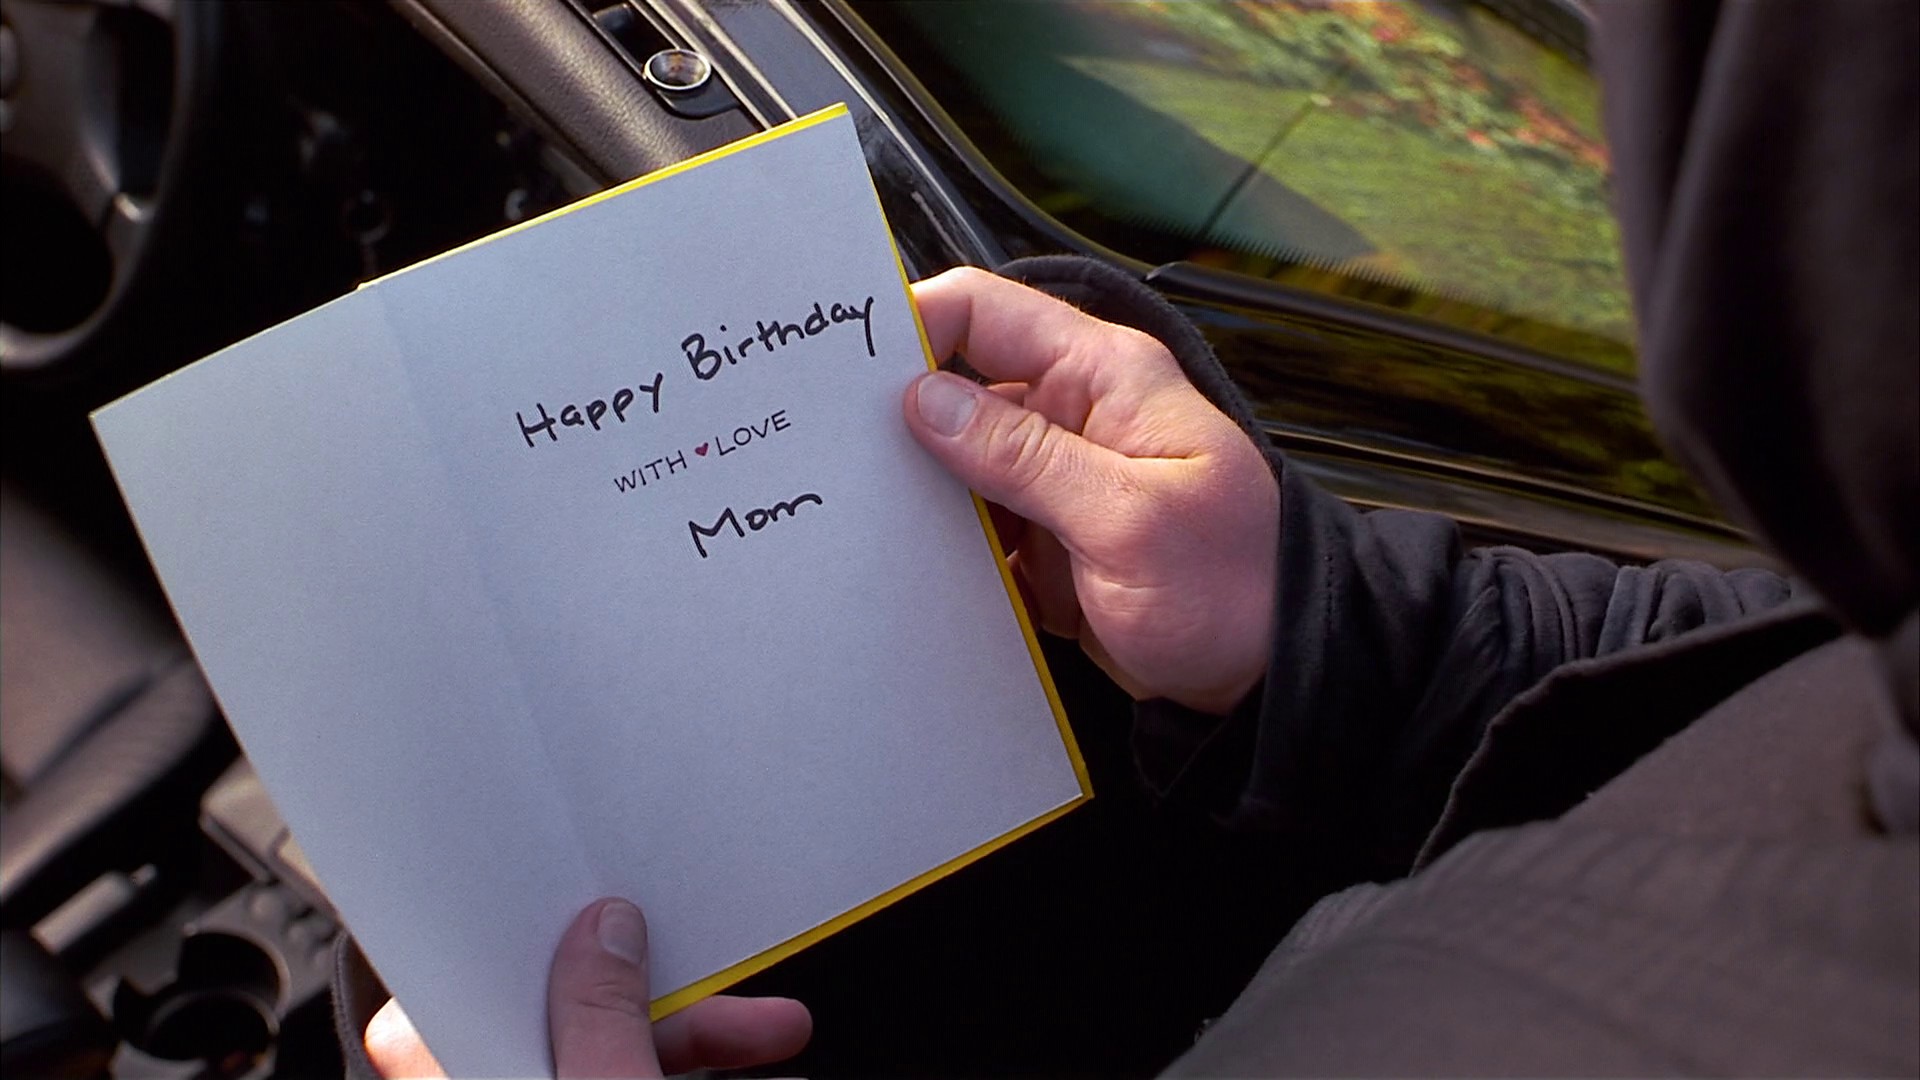 Happy Birthday
WITH ♥ LOVE
Mom